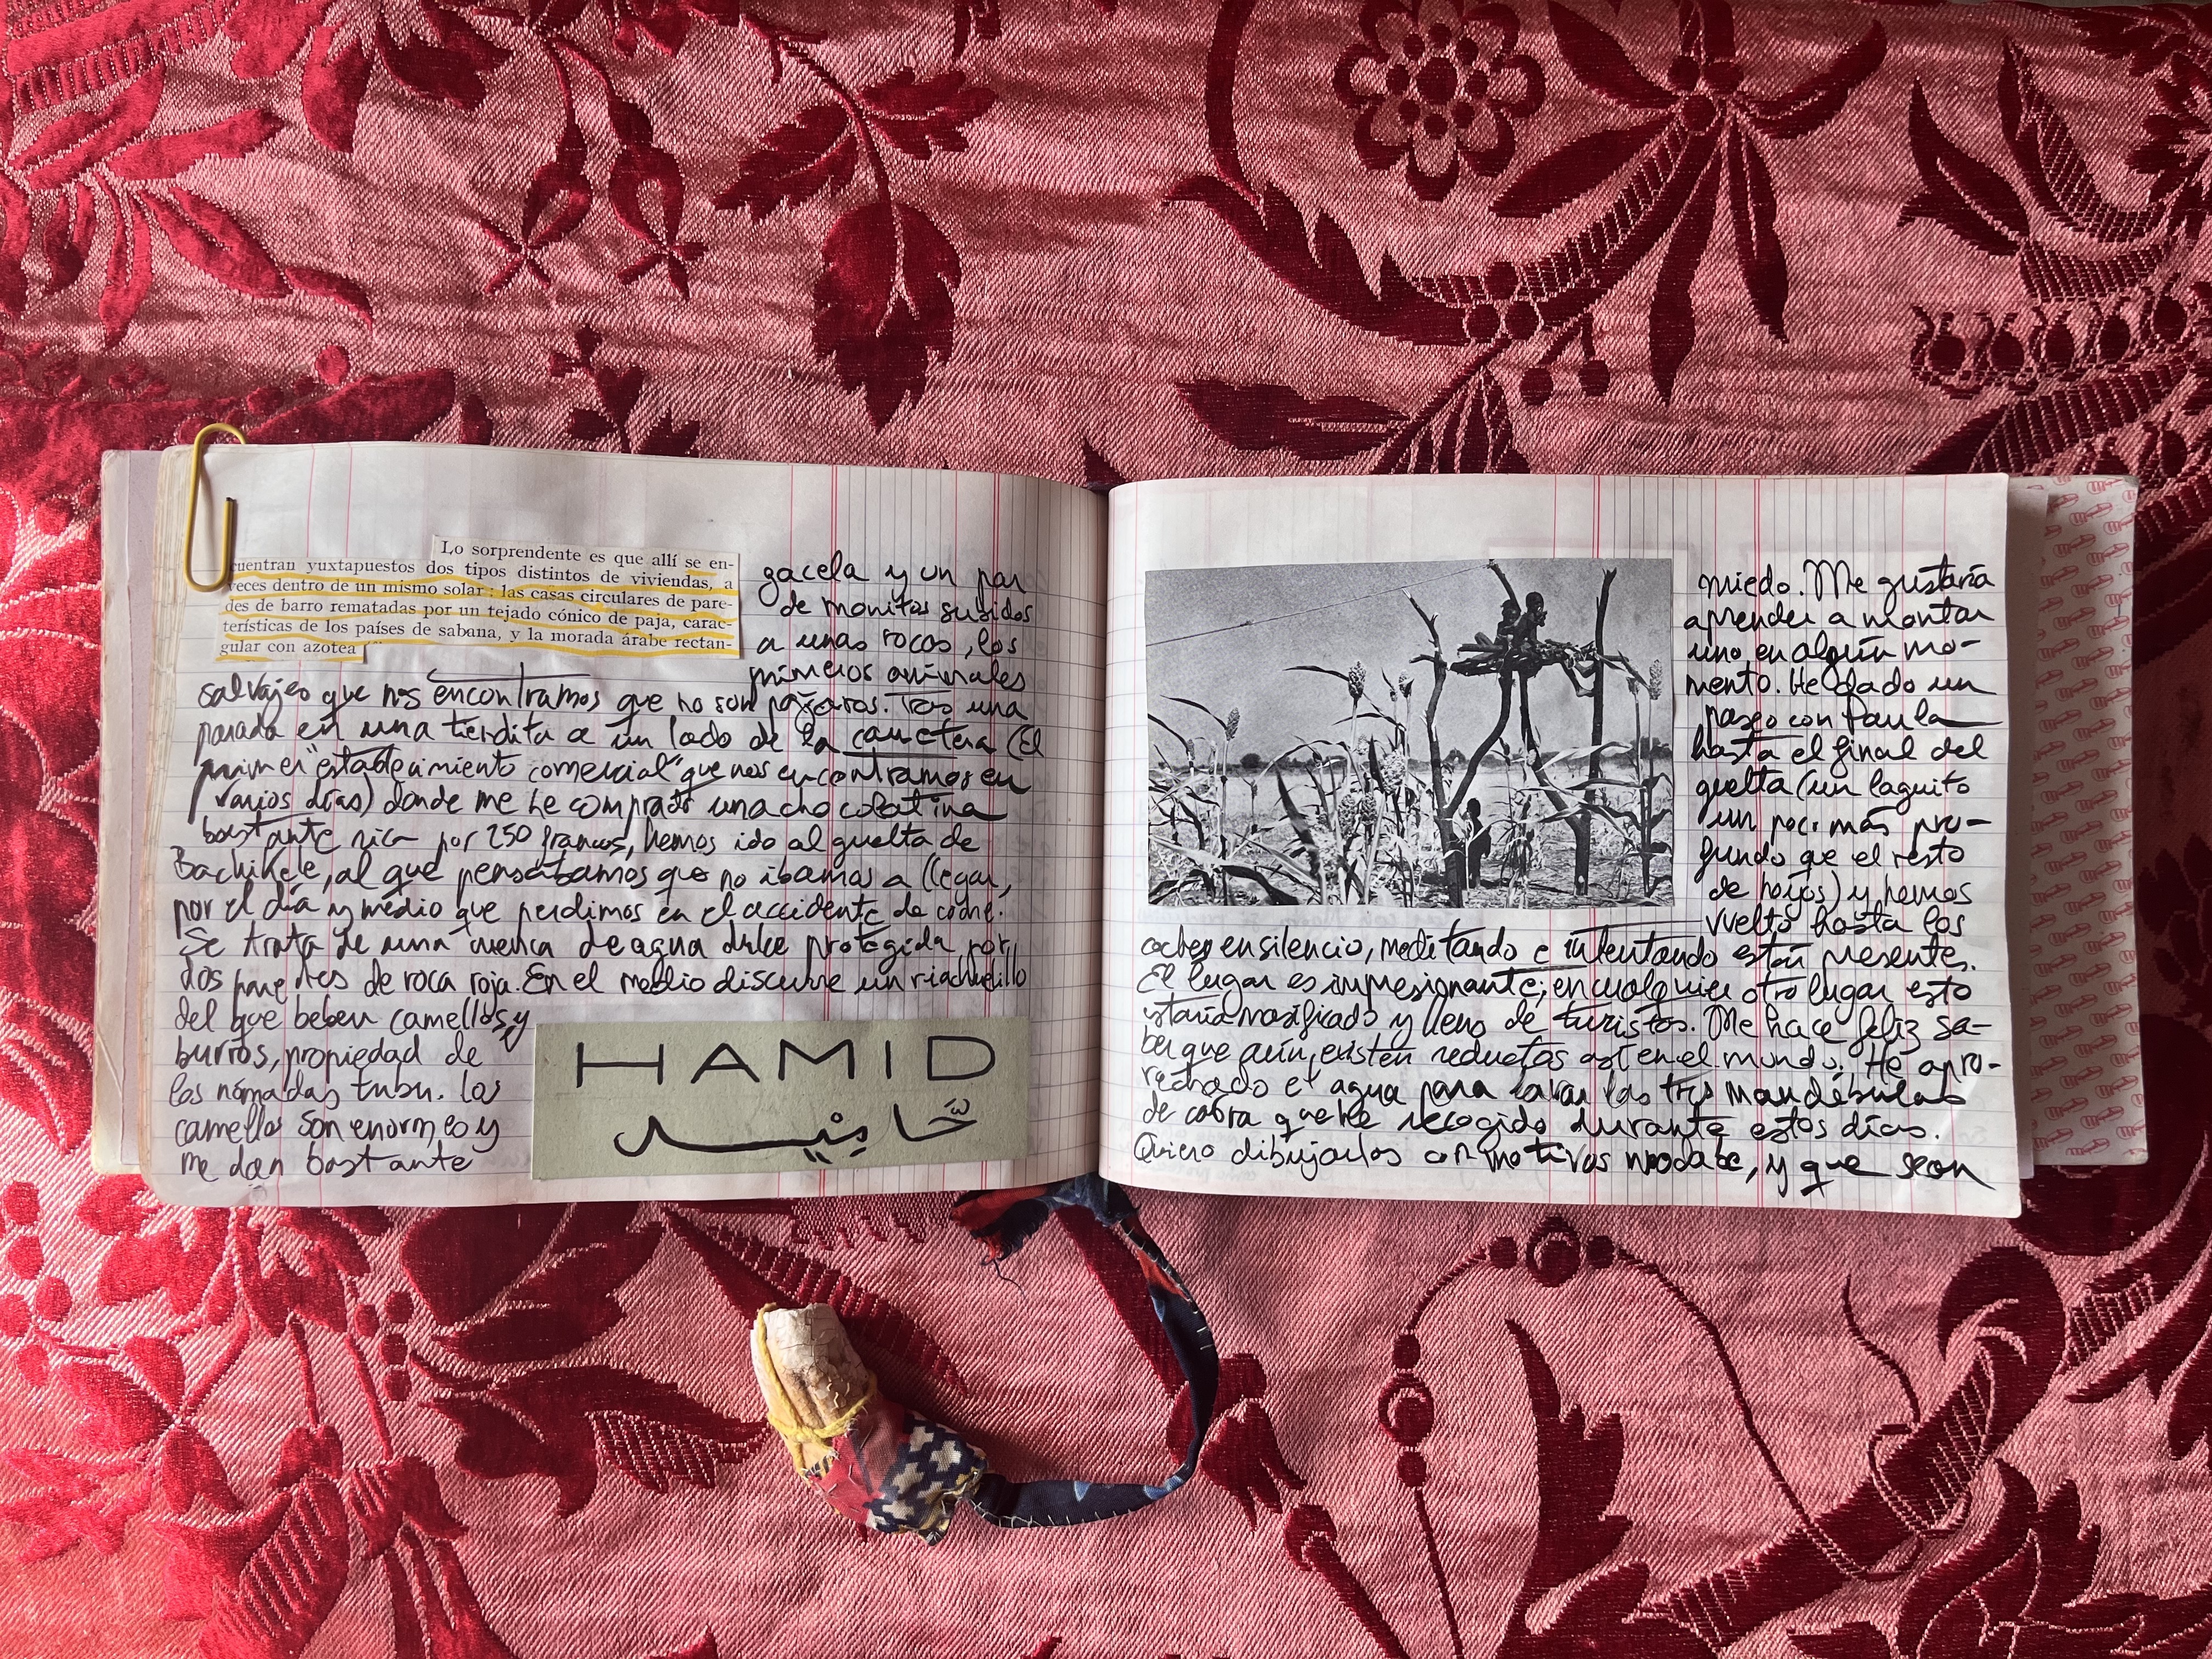 Lo sorprendente es que allí se en-
cuentran yuxtapuestos dos tipos distintos de viviendas, a
veces dentro de un mismo solar: las casas circulares de pare-
des de barro rematadas por un tejado cónico de paja, carac-
terísticas de los países de sabana, y la morada árabe rectan-
gular con azotea
gacela y un par
de monitos subidos
a unas rocas, los
primeros animales
salvajes que nos encontramos que no son pájaros. Tras una
parada en una tiendita a un lado de la carretera (El
primer "establecimiento comercial" que nos encontramos en
varios días) donde me he comprado una chocolatina
bastante rica por 250 francos, hemos ido al guelta de
Bachikele, al que pensábamos que no íbamos a llegar,
por el día y medio que perdimos en el accidente de coche.
Se trata de una cuenca de agua dulce protegida por
dos paredes de roca roja. En el medio discurre un riachuelillo
del que beben camellos y
burros, propiedad de
los nómadas tubu. Los
camellos son enormes y
me dan bastante
HAMID
حَامِيد
miedo. Me gustaría
aprender a montar
uno en algún mo-
mento. He dado un
paseo con Paula
hasta el final del
guelta (un laguito
un poco más pro-
fundo que el resto
de hojos) y hemos
vuelto hasta los
coches en silencio, meditando e intentando estar presentes.
El lugar es impresionante; en cualquier otro lugar esto
estaría masificado y lleno de turistas. Me hace feliz sa-
ber que aún existen reductos así en el mundo. He apro-
vechado el agua para lavar las tres mandíbulas
de cabra que he recogido durante estos días.
Quiero dibujarlas con motivos wodabe, y que sean